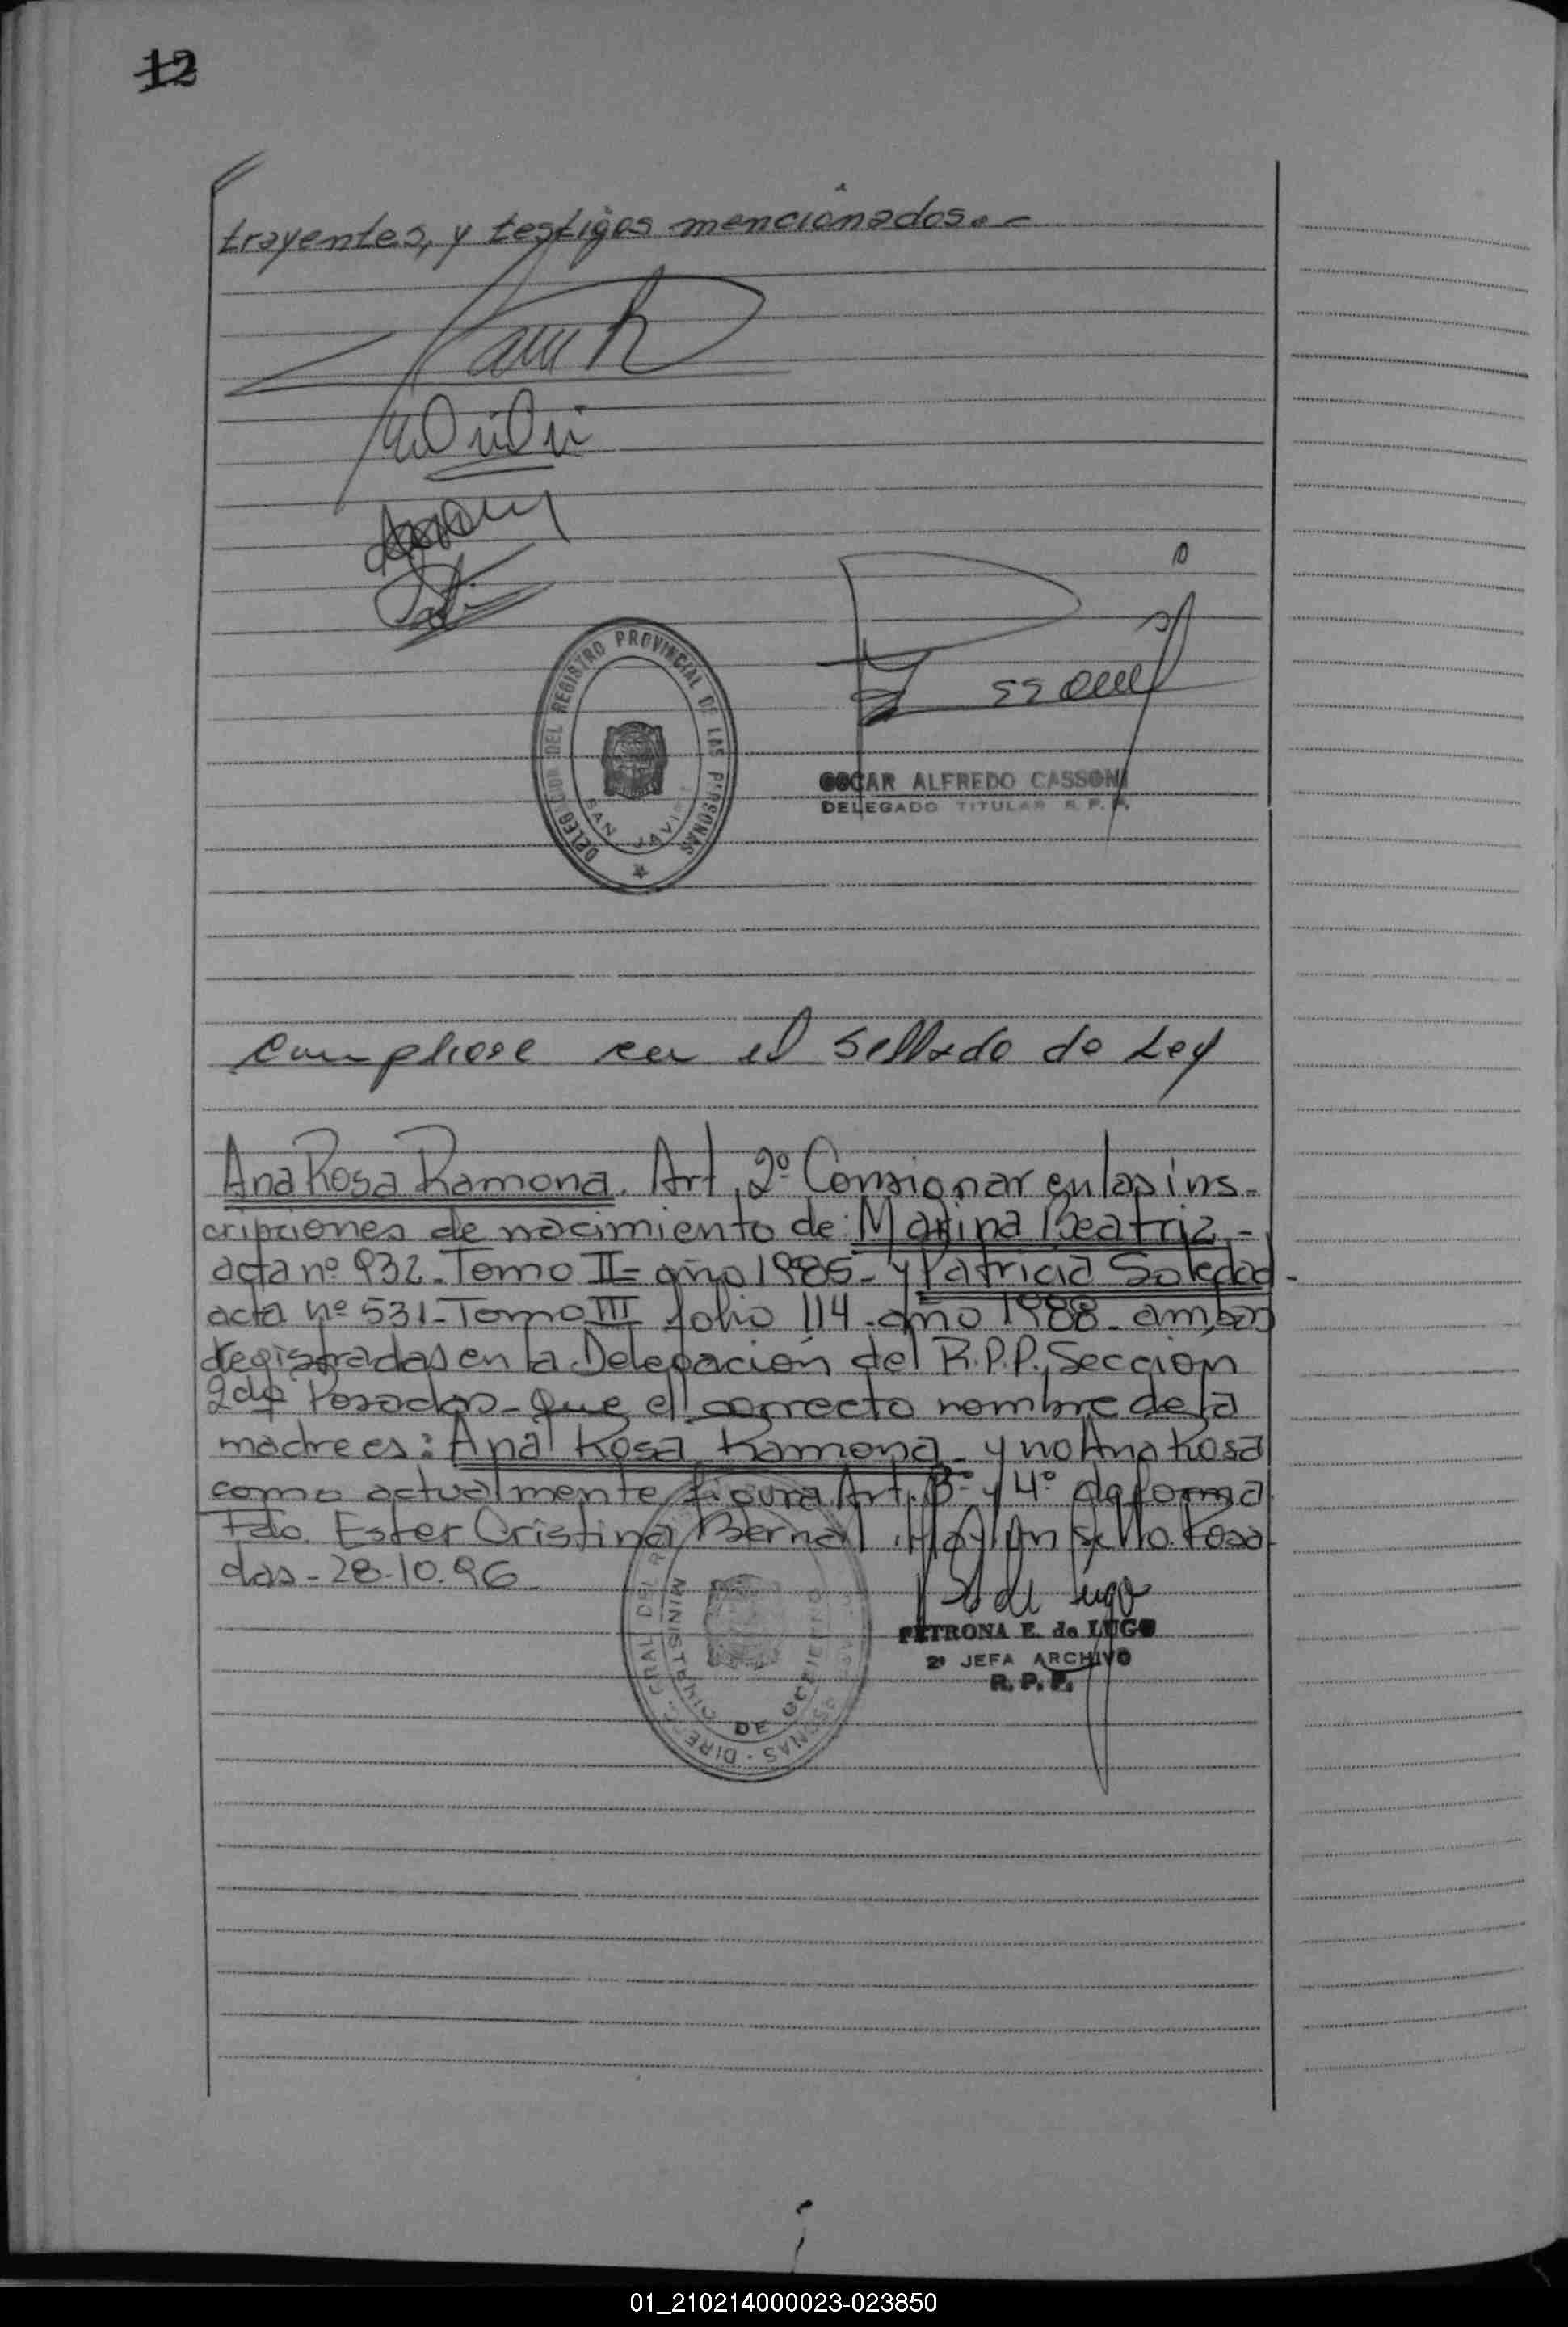 12
trayentes, y testigos mencionados.-
DELEGACION DEL REGISTRO PROVINCIAL DE LAS PERSONAS
SAN JAVIER
OSCAR ALFREDO CASSONI
DELEGADO TITULAR R. P. P.
Cumpliose con el Sellado de Ley
Ana Rosa Ramona. Art. 2º Consignar en las ins-
cripciones de nacimiento de: Marina Beatriz,-
acta nº 932. Tomo II- año 1985- y Patricia Soledad-
acta nº 531- Tomo III folio 114- año 1988- ambas
registradas en la Delegación del R.P.P. Sección
2da Posadas- Que el correcto nombre de la
madre es: Ana Rosa Ramona- y no Ana Rosa
como actualmente figura Art. 3º y 4º de forma
Fdo. Ester Cristina Bernal. Hay un sello. Posa-
das- 28-10.96-
MINISTERIO DE GOBIERNO
PETRONA E. de LUGO
2ª JEFA ARCHIVO
R. P. P.
01_210214000023-023850